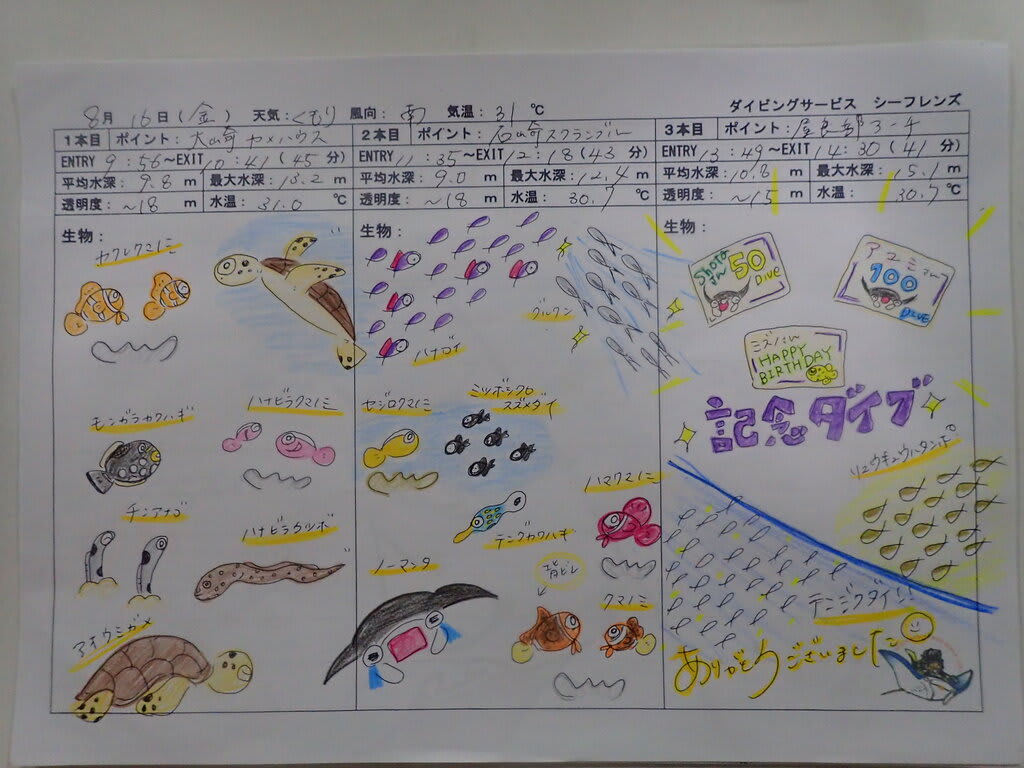 8月 16日(金) 天気:くもり 風向:南 気温:31℃
ダイビングサービス シーフレンズ
1本目 ポイント:大崎 カメハウス
ENTRY 9:56~EXIT 10:41(45分)
平均水深:9.8m 最大水深:13.2m
透明度:~18m 水温:31.0℃
生物:
カクレクマノミ
モンガラカワハギ
ハナビラクマノミ
チンアナゴ
ハナビラウツボ
アオウミガメ
2本目 ポイント:石崎スクランブル
ENTRY 11:35~EXIT 12:18(43分)
平均水深:9.0m 最大水深:12.4m
透明度:~18m 水温:30.7℃
生物:
グルクン
ハナゴイ
セジロクマノミ
ミツボシクロ
スズメダイ
ハマクマノミ
テングカワハギ
ノーマンタ
背ビレ
クマノミ
3本目 ポイント:屋良部コーナー
ENTRY 13:49~EXIT 14:30(41分)
平均水深:10.8m 最大水深:15.1m
透明度:~15m 水温:30.7℃
生物:
Shotaさん
50
DIVE
アユミさん
100
DIVE
HAPPY
BIRTHDAY
記念ダイブ
リュウキュウハタンポ
テンジクダイ!!
ありがとうございました